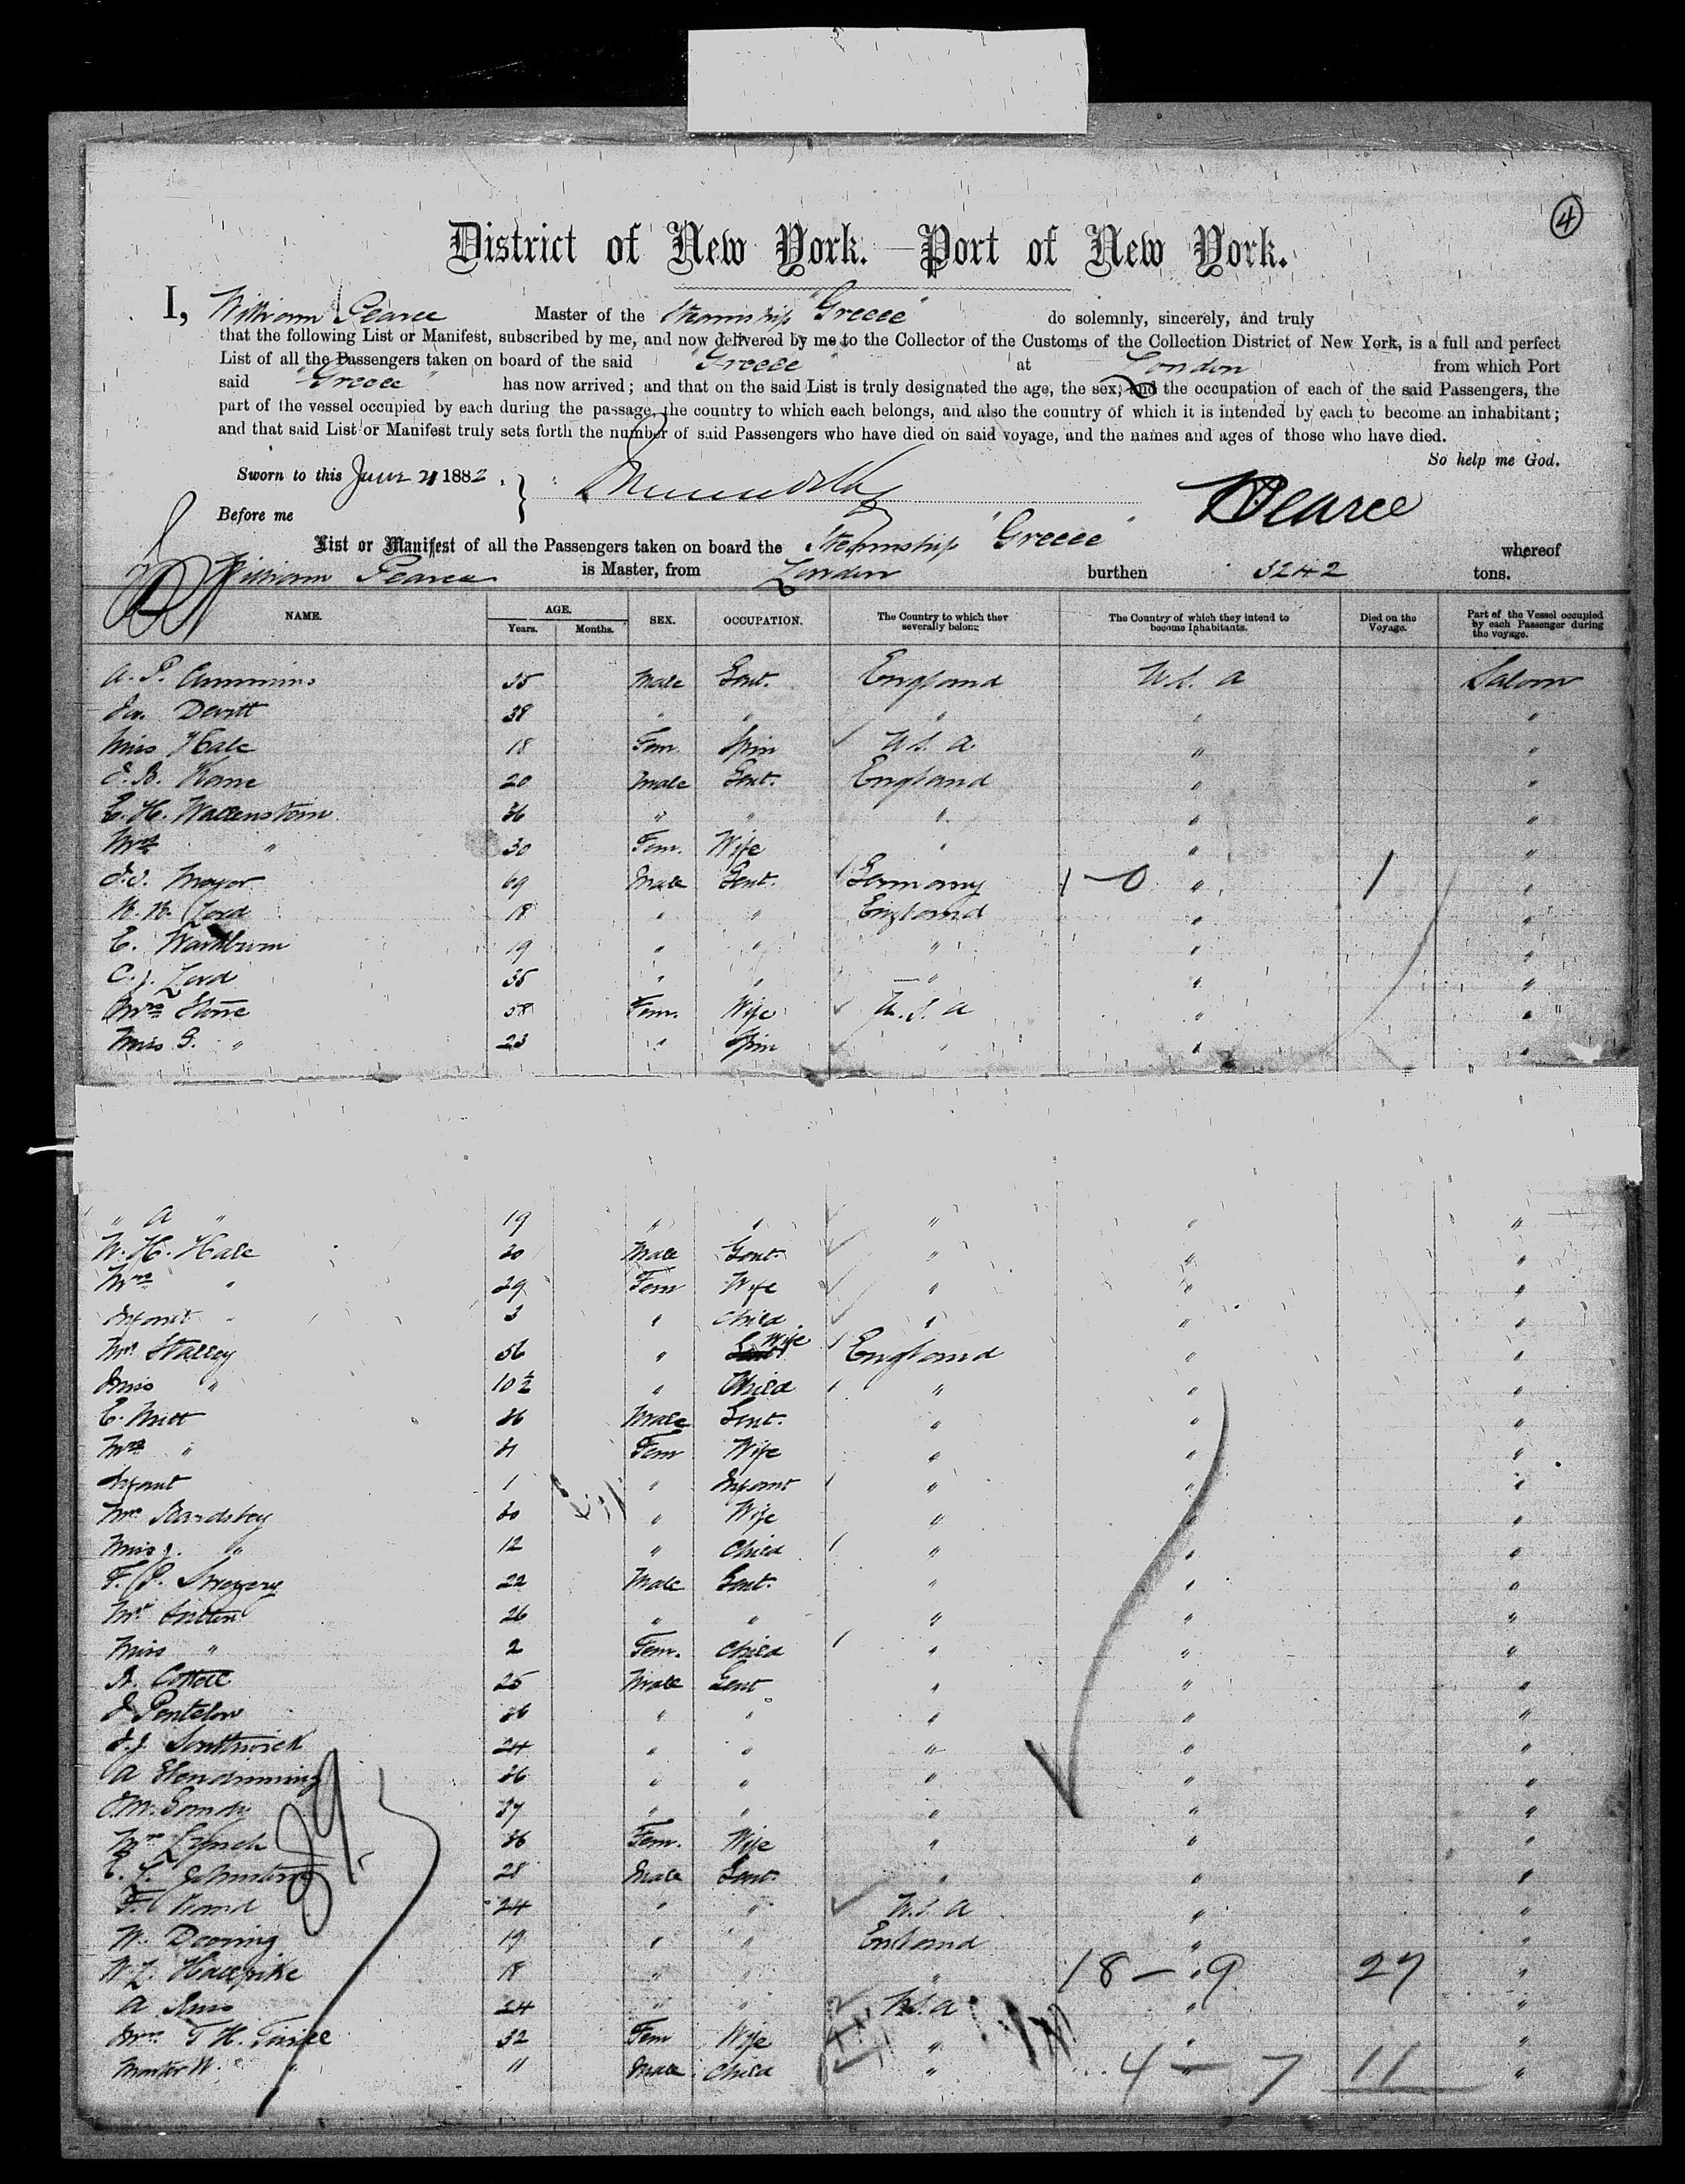 4
District of New York.—Port of New York.
I, William Pearce Master of the Steamship "Greece" do solemnly, sincerely, and truly
that the following List or Manifest, subscribed by me, and now delivered by me to the Collector of the Customs of the Collection District of New York, is a full and perfect
List of all the Passengers taken on board of the said "Greece" at London from which Port
said "Greece" has now arrived; and that on the said List is truly designated the age, the sex, and the occupation of each of the said Passengers, the
part of the vessel occupied by each during the passage, the country to which each belongs, and also the country of which it is intended by each to become an inhabitant;
and that said List or Manifest truly sets forth the number of said Passengers who have died on said voyage, and the names and ages of those who have died.
So help me God.
Sworn to this June 21 1882
Before me
WPearce
List or Manifest of all the Passengers taken on board the Steamship "Greece" whereof
William Pearce is Master, from London burthen 3242 tons.
NAME. AGE. SEX. OCCUPATION. The Country to which they severally belong The Country of which they intend to become Inhabitants. Died on the Voyage. Part of the Vessel occupied by each Passenger during the voyage.
Years. Months.
A. P. Cummins 35 Male Gent. England U.S.A Saloon
Devitt 38 " " " " "
Miss Hale 18 Fem. Spin U.S.A. " "
20 Male Gent. England " "
E. H. Wallenstein 36 " " " " "
Mrs " 30 Fem. Wife " " "
Mayer 69 Male Gent. Germany 1-0 " 1 "
Lord 18 " " England " "
E. Washburn 19 " " " " "
C. J. Lord 35 " " " " "
Mrs Stone 58 Fem. Wife U.S.A " "
Miss G. " 23 " Spin " " "
" A " 19 " " " " "
W. H. Hale 30 Male Gent. " " "
Mrs " 29 Fem Wife " " "
Infant " 3 " Child " " "
Mrs Stalley 56 " Wife England " "
Miss " 10½ " Child " " "
E. Mitt 36 Male Gent. " " "
Mrs " 31 Fem Wife " " "
Infant 1 " Infant " " "
Mrs Bardsley 30 " Wife " " "
Miss J. " 12 " Child " " "
F. P. 22 Male Gent. " " "
Mr 26 " " " " "
Miss " 2 Fem. Child " " "
Cottell 25 Male Gent " " "
J Pentelow 36 " " " " "
J. J. Southwick 24 " " " " "
A 36 " " " " "
37 " " " " "
Mrs Lynch 36 Fem. Wife " " "
E. 28 Male Gent. " " "
F. 24 " " U.S.A " "
W. Deering 19 " " England " "
Hallpike 18 " " " 18-9 27 "
A 24 " " U.S.A " "
Mrs T H. 32 Fem Wife " " "
Master W. " 11 Male Child " 4-7 11 "
39